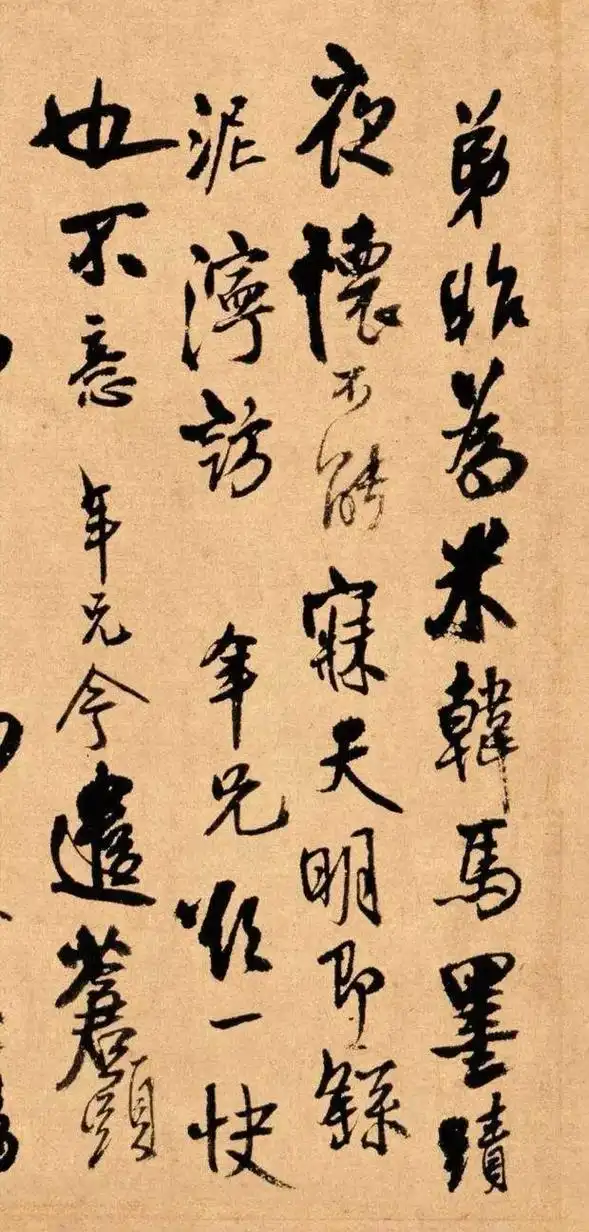 弟昨為米韓馬墨蹟
夜懷不能寐天明即
泥濘訪年兄欲一快
也不意年兄今遣蒼頭